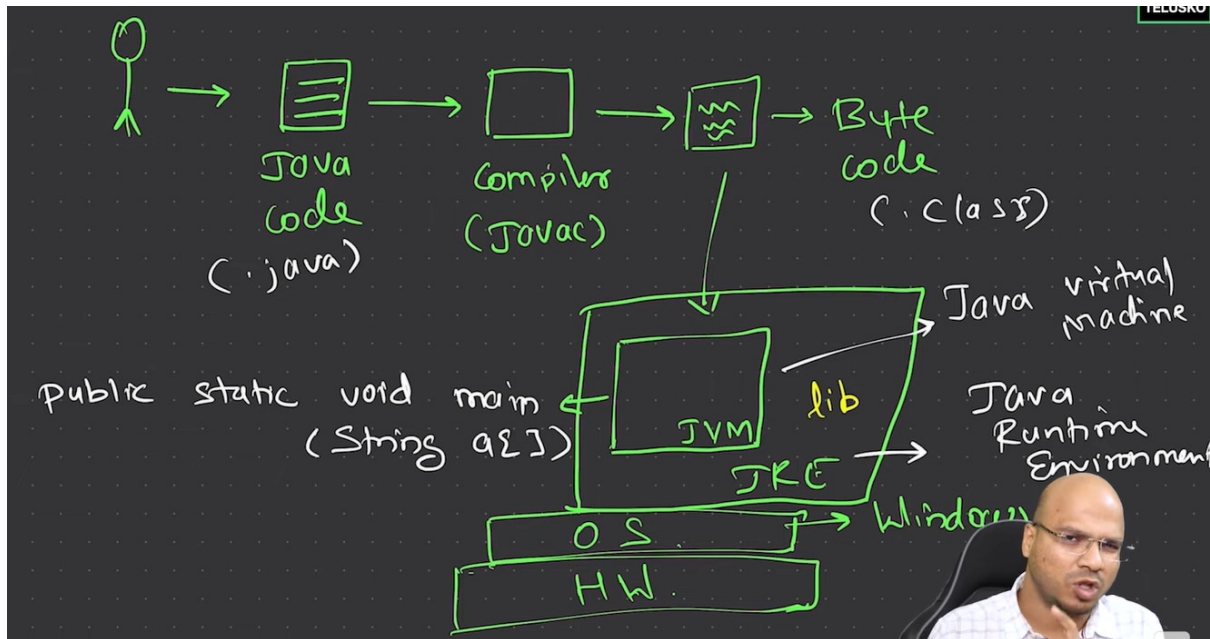 TELUSKO
Java
code
(.java)
Compiler
(Javac)
Byte
code
(.Class)
Java virtual
Machine
public static void main
(String a[])
JVM
lib
JRE
Java
Runtime
Environment
OS.
Windows
HW.